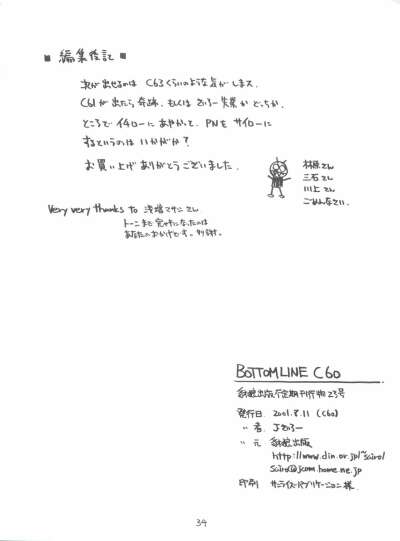 ■ 編集後記 ■
次が出せるのは C63くらいのような気がします。
C61が出たら奇跡、もくは さいろー失業か どっちか。
ところで イチローにあやかって、PNを サイローに
するというのは いかがか?
お買い上げ ありがとうございました。
林原さん
三石さん
川上さん
ごめんなさい。
Very very thanks To 浅増マサシさん
トーンまで完ペキになったのは
あなたのおかげです。多謝。
BOTTOMLINE C60
出版庁定期刊行物23号
発行日 2001.8.11 (C60)
〃 者 さいろー
〃 元 出版
http://www.din.or.jp/~sairo/
sairo@jcom.home.ne.jp
印刷 サンライズパブリケーション様
34